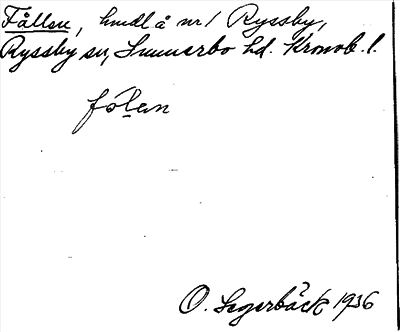 Fållen, hmdl å nr 1 Ryssby,
Ryssby sn, Sunnerbo hd. Kronob. l.
fólan
O. Segerbäck 1936